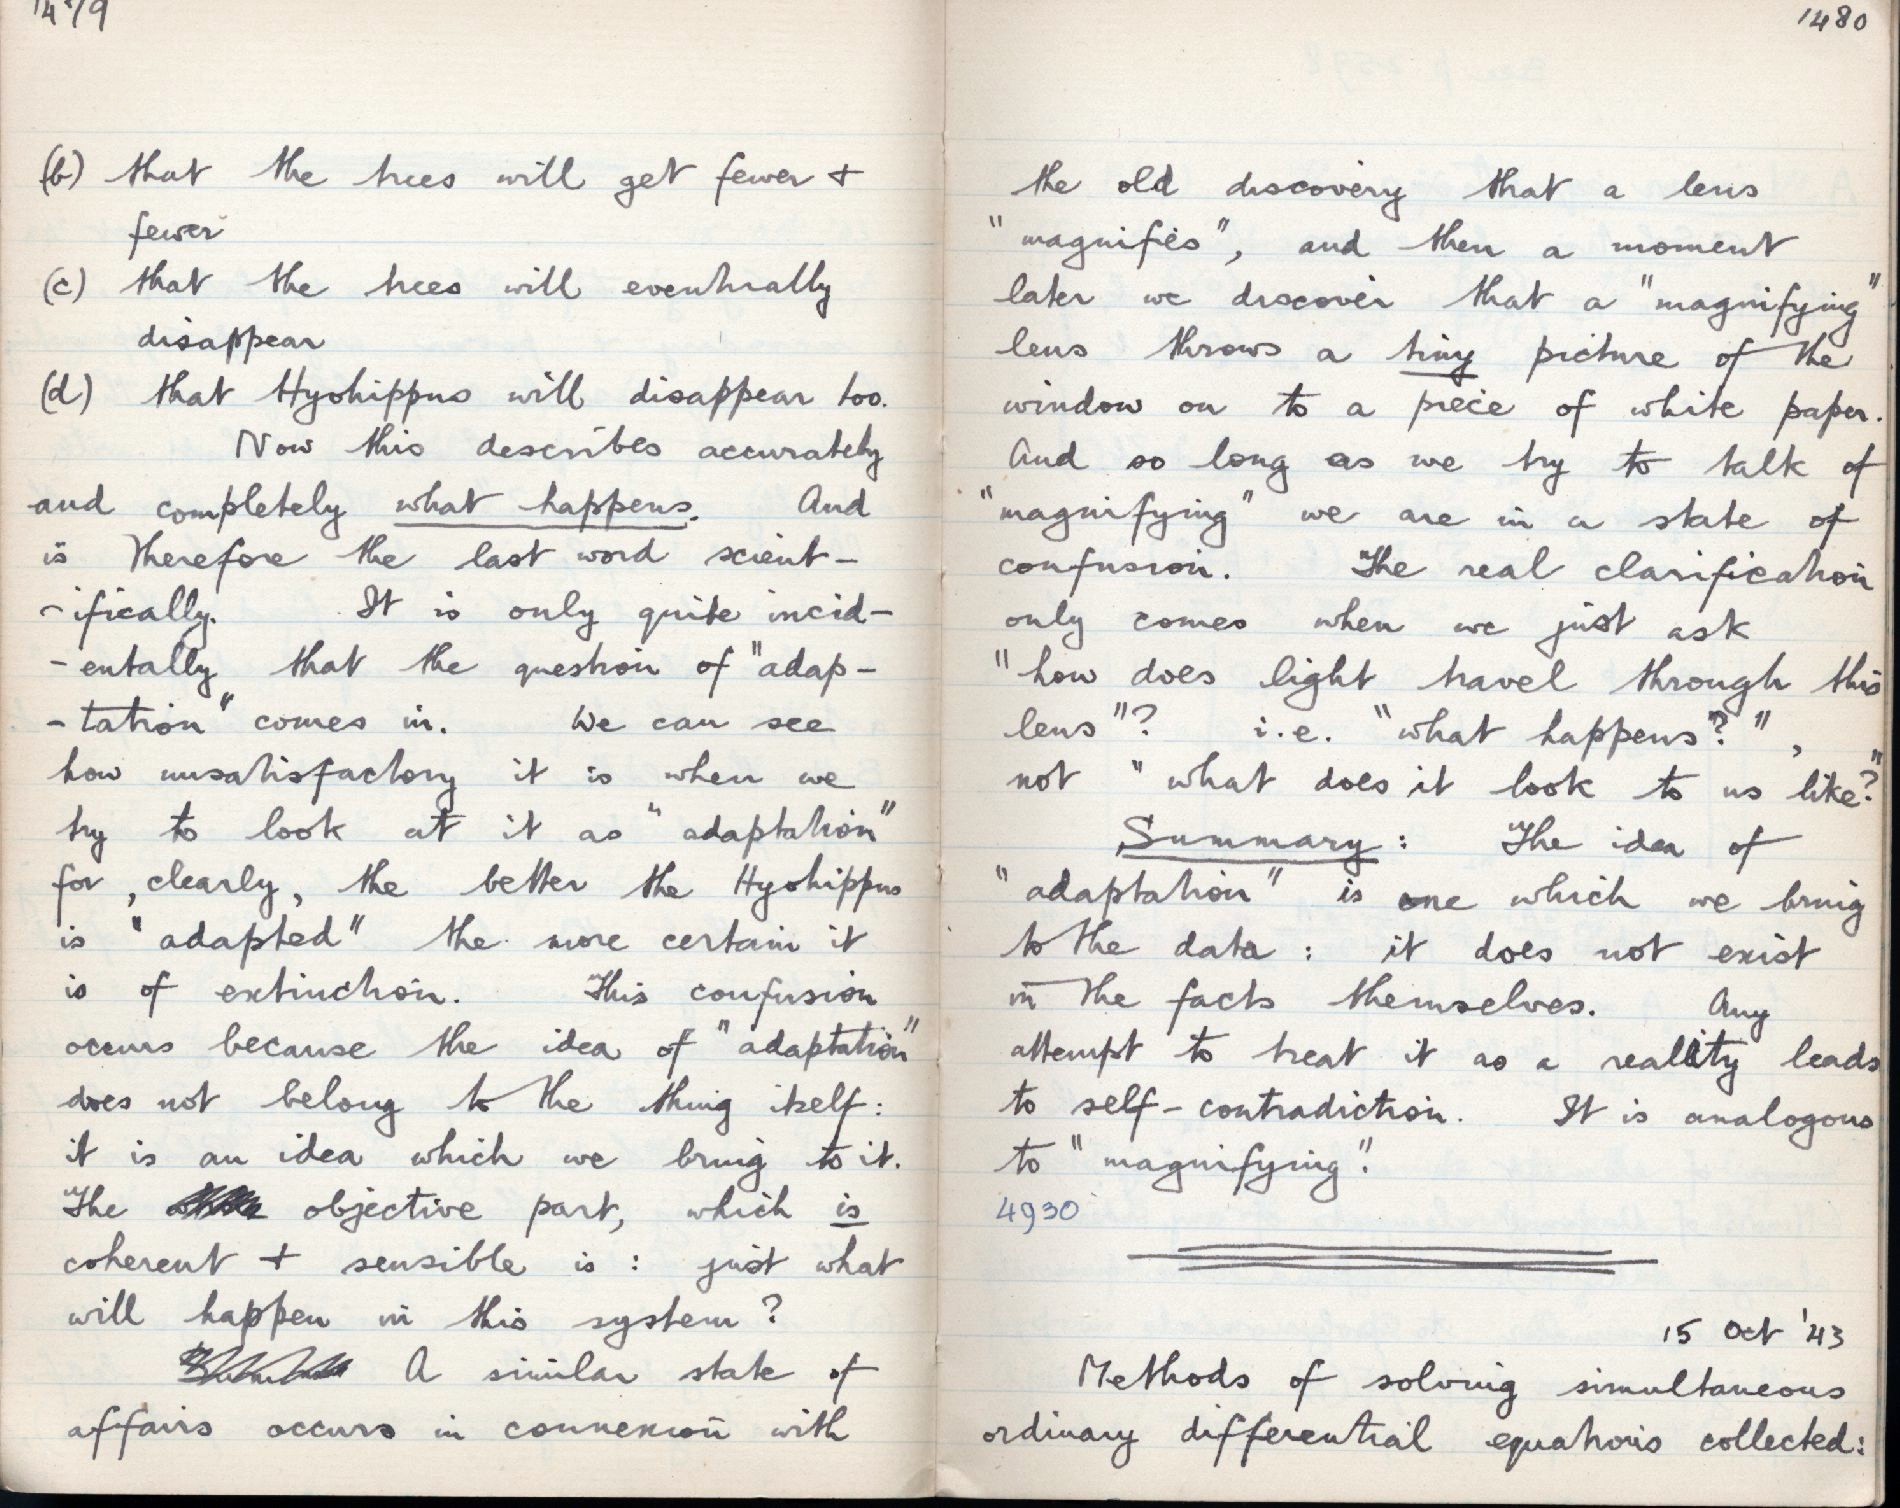 1479
(b) that the trees will get fewer +
fewer
(c) that the trees will eventually
disappear
(d) that Hyohippus will disappear too.
Now this describes accurately
and completely what happens. And
is therefore the last word scient-
-ifically. It is only quite incid-
-entally that the question of "adap-
-tation" comes in. We can see
how unsatisfactory it is when we
try to look at it as "adaptation"
for, clearly, the better the Hyohippus
is "adapted" the more certain it
is of extinction. This confusion
occurs because the idea of "adaptation"
does not belong to the thing itself:
it is an idea which we bring to it.
The objective part, which is
coherent + sensible is: just what
will happen in this system?
A similar state of
affairs occurs in connexion with
1480
the old discovery that a lens
"magnifies", and then a moment
later we discover that a "magnifying"
lens throws a tiny picture of the
window on to a piece of white paper.
And so long as we try to talk of
"magnifying" we are in a state of
confusion. The real clarification
only comes when we just ask
"how does light travel through this
lens"? i.e. "what happens?",
not "what does it look to us like?"
Summary: The idea of
"adaptation" is one which we bring
to the data: it does not exist
in the facts themselves. Any
attempt to treat it as a reality leads
to self-contradiction. It is analogous
to "magnifying".
4930
15 Oct '43
Methods of solving simultaneous
ordinary differential equations collected: